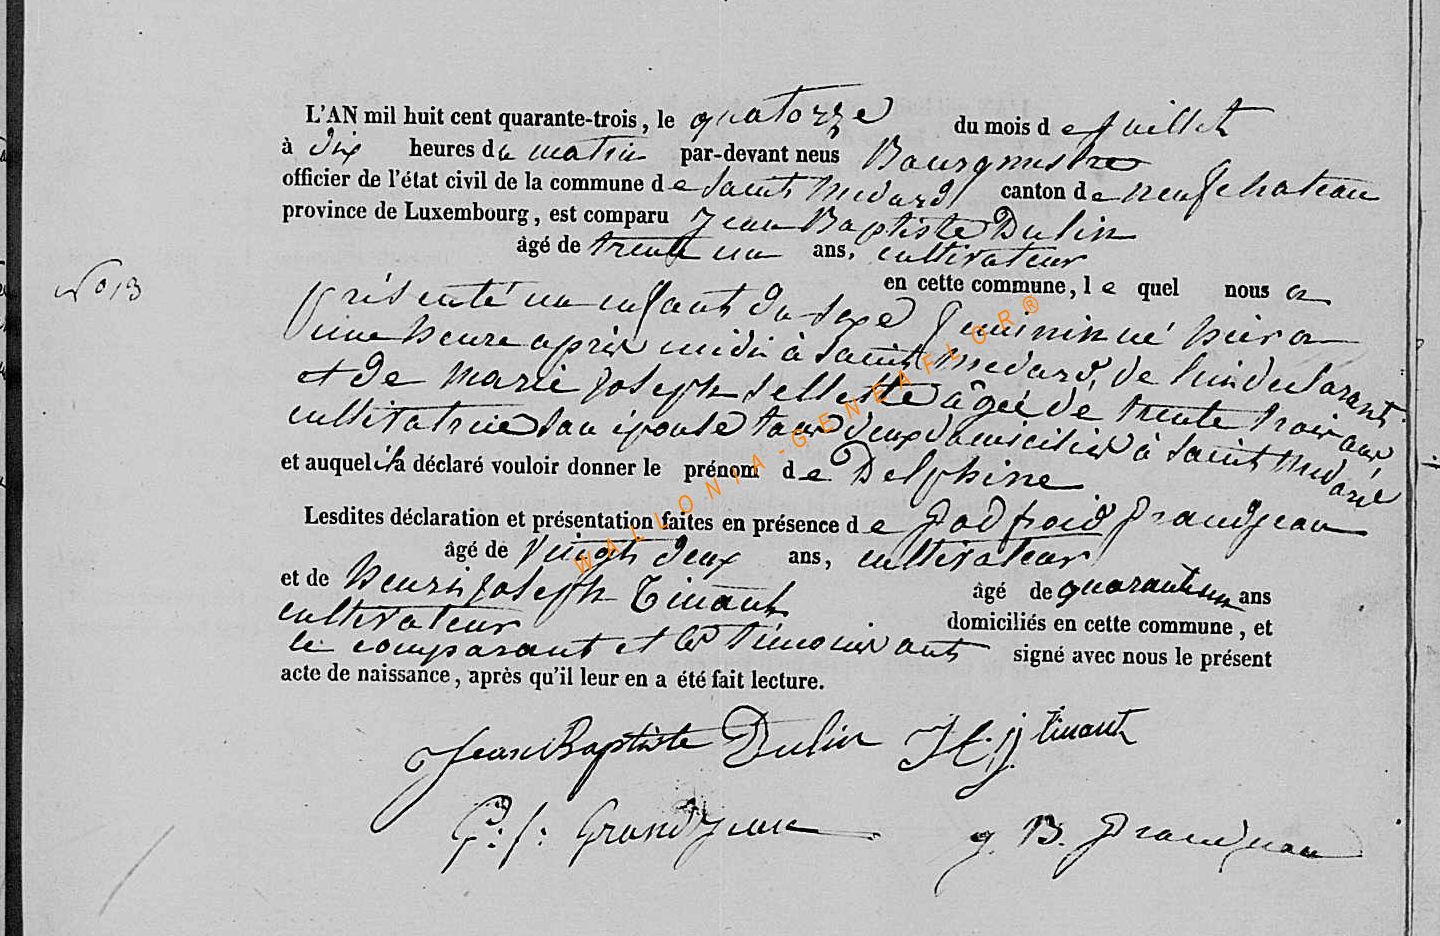 L'AN mil huit cent quarante-trois, le quatorze du mois de juillet
à dix heures du matin par-devant neus Bourgmestre
officier de l'état civil de la commune de Saint Medard canton de neufchateau
province de Luxembourg, est comparu Jean Baptiste Dulin
âgé de trente un ans, cultivateur
N° 13
en cette commune, le quel nous a
présenté un enfant du sexe feminin né hier a
une heure après midi à Saint Medard, de lui declarant
et de Marie Joseph Sellette âgée de trente trois ans
cultivatrice son épouse tous deux domiciliés à Saint Medard
et auquel il a déclaré vouloir donner le prénom de Delphine
Lesdites déclaration et présentation faites en présence de Godfroid Grandjean
âgé de vingt deux ans, cultivateur
et de henri joseph Tinant âgé de quarante un ans
cultivateur domiciliés en cette commune, et
le comparant et les témoins ont signé avec nous le présent
acte de naissance, après qu'il leur en a été fait lecture.
Jean Baptiste Dulin H. j tinant
G. j. Grandjean g. B. Grandjean
WALLONIA-GENEAFLOR®